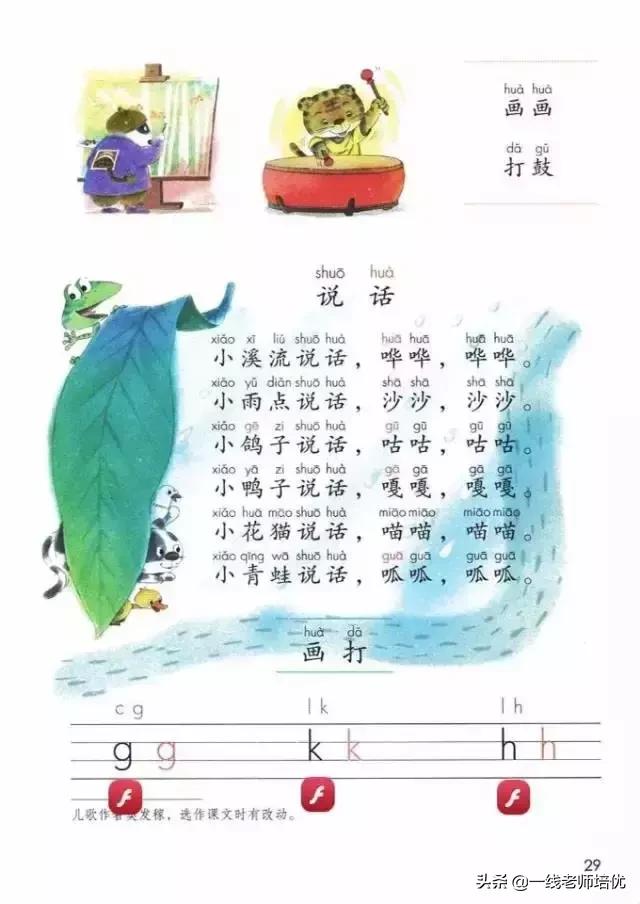 huà huà
画画
dǎ gǔ
打鼓
shuō huà
说话
xiǎo xī liú shuō huà huā huā huā huā
小溪流说话，哗哗，哗哗。
xiǎo yǔ diǎn shuō huà shā shā shā shā
小雨点说话，沙沙，沙沙。
xiǎo gē zi shuō huà gū gū gū gū
小鸽子说话，咕咕，咕咕。
xiǎo yā zi shuō huà gā gā gā gā
小鸭子说话，嘎嘎，嘎嘎。
xiǎo huā māo shuō huà miāo miāo miāo miāo
小花猫说话，喵喵，喵喵。
xiǎo qīng wā shuō huà guā guā guā guā
小青蛙说话，呱呱，呱呱。
huà dǎ
画打
c g l k l h
g g k k h h
儿歌作者 发稼，选作课文时有改动。
29
头条 @一线老师培优